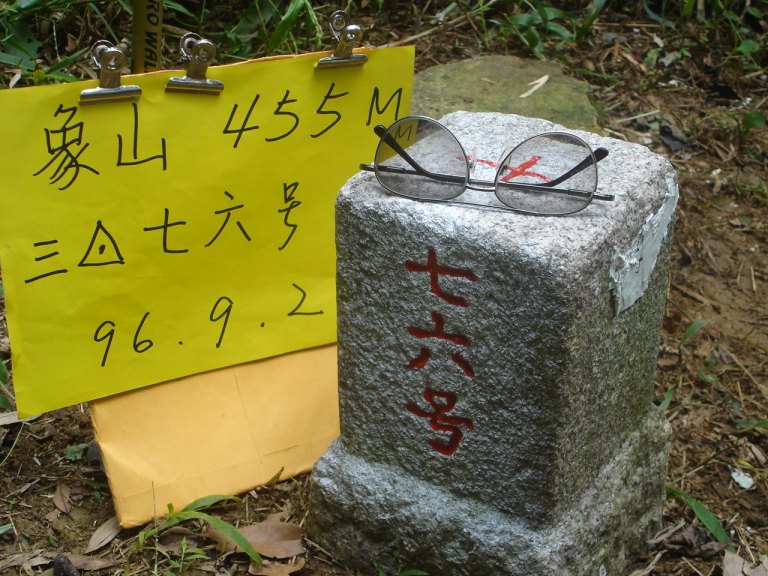 象山 455M
三△七六号
96.9.2
七六号